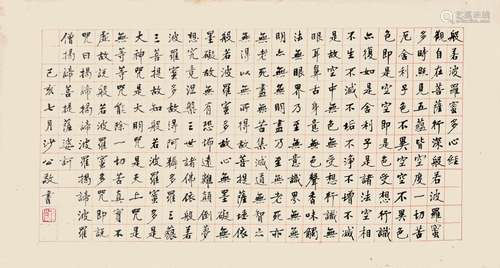 般若波羅蜜多心經
觀自在菩薩行深般若波羅蜜
多時照見五蘊皆空度一切苦
厄舍利子色不異空空不異色
色即是空空即是色受想行識
亦復如是舍利子是諸法空相
不生不滅不垢不淨不增不減
是故空中無色無受想行識無
眼耳鼻舌身意無色聲香味觸
法無眼界乃至無意識界無無
明亦無無明盡乃至無老死亦
無老死盡無苦集滅道無智亦
無得以無所得故菩提薩埵依
般若波羅蜜多故心無罣礙無
罣礙故無有恐怖遠離顛倒夢
想究竟涅槃三世諸佛依般若
波羅蜜多故得阿耨多羅三藐
三菩提故知般若波羅蜜多是
大神咒是大明咒是無上咒是
無等等咒能除一切苦真實不
虛故說般若波羅蜜多咒即說
咒曰揭諦揭諦波羅揭諦波羅
僧揭諦菩提薩婆訶
己亥七月沙公敬書